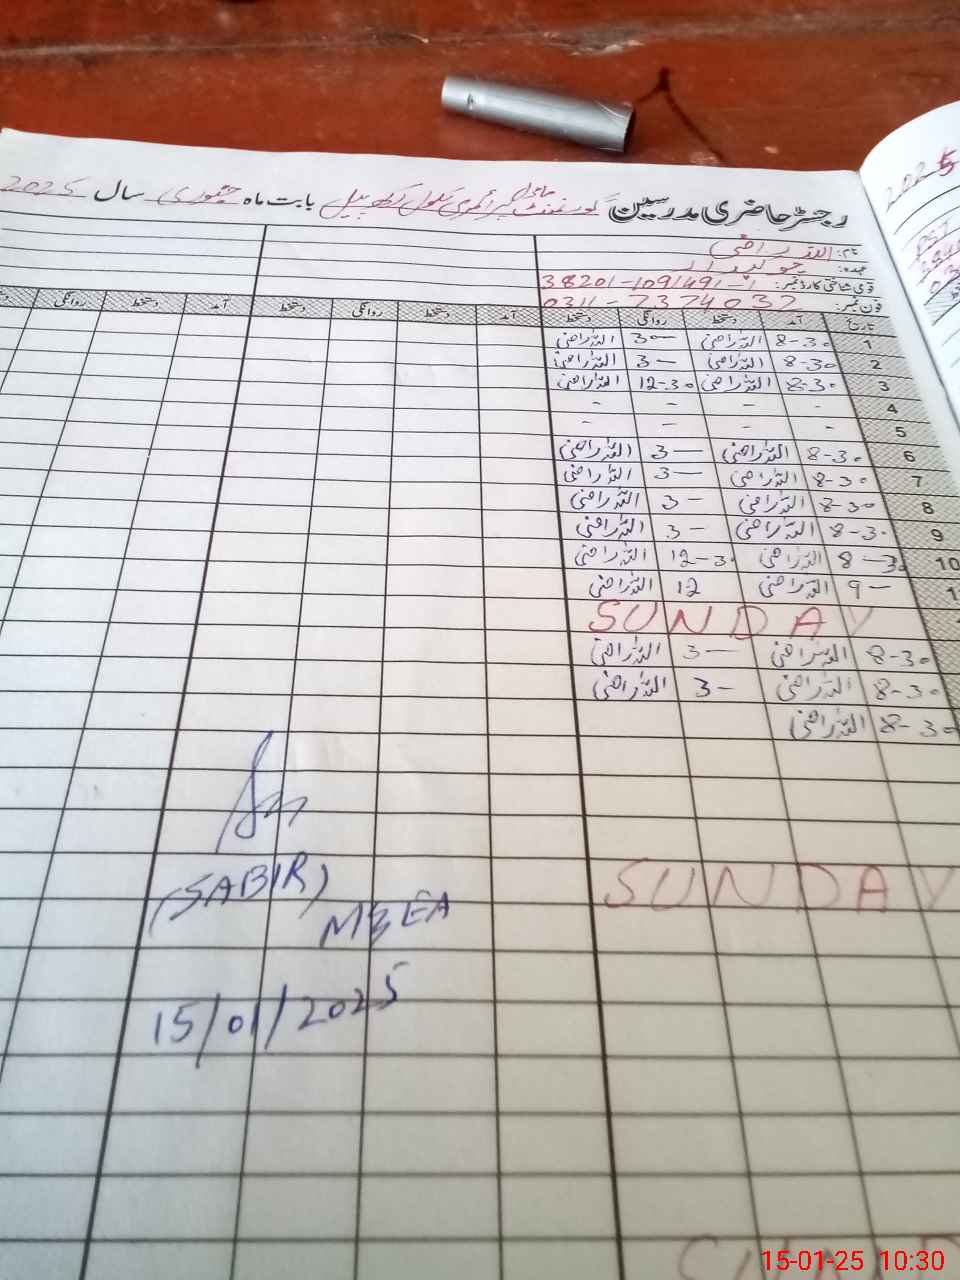 رجسٹر حاضری مدرسین گورنمنٹ ماڈل پرائمری سکول رکھ بیل بابت ماہ جنوری سال 2025
نام: اللہ راضی
عہدہ: چوکیدار
قومی شناختی کارڈ نمبر: 38201-1091491-1
فون نمبر: 0311-7374032
تاریخ آمد دستخط روانگی دستخط آمد دستخط روانگی دستخط آمد دستخط روانگی
1 8-30 اللہ راضی 3— اللہ راضی
2 8-30 اللہ راضی 3— اللہ راضی
3 8-30 اللہ راضی 12-30 اللہ راضی
4 - - - -
5 - - - -
6 8-30 اللہ راضی 3— اللہ راضی
7 8-30 اللہ راضی 3— اللہ راضی
8 8-30 اللہ راضی 3— اللہ راضی
9 8-30 اللہ راضی 3— اللہ راضی
10 8-30 اللہ راضی 12-30 اللہ راضی
9— اللہ راضی 12 اللہ راضی
SUNDAY
8-30 اللہ راضی 3— اللہ راضی
8-30 اللہ راضی 3— اللہ راضی
8-30 اللہ راضی
SUNDAY
(SABIR)
MEA
15/01/2025
2025
15-01-25 10:30